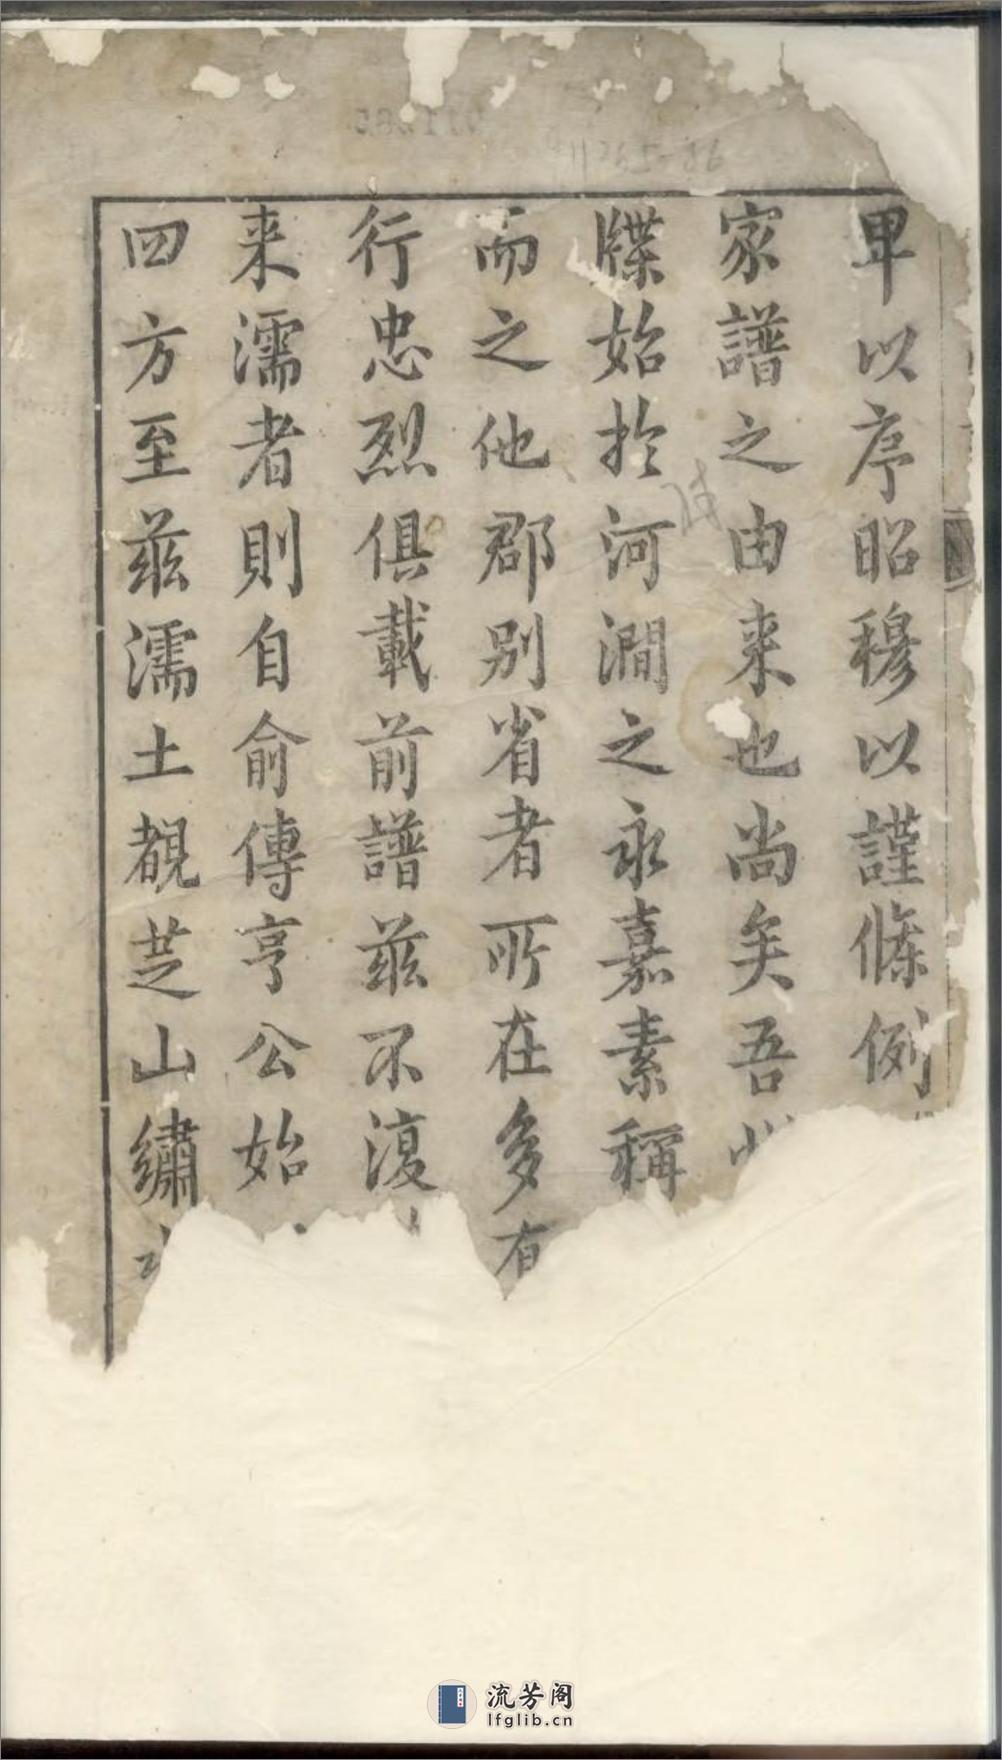 卑以序昭穆以謹條例
家譜之由来也尚矣吾
牒始於河澗之永嘉素稱
而之他郡别省者所在多有
行忠烈俱載前譜茲不復
来濡者則自俞傳亨公始
四方至茲濡土覩芝山繡
流芳阁
lfglib.cn